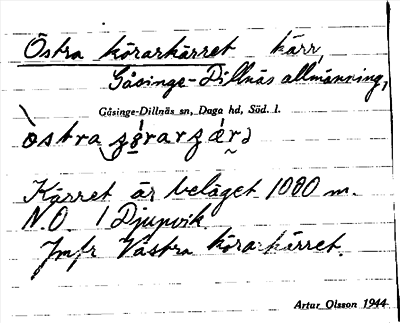 Östra körarkärret kärr,
Gåsinge-Dillnäs allmänning,
Gåsinge-Dillnäs sn, Daga hd, Söd. l.
Kärret är beläget 1080 m.
N.O. / Djupvik.
Jmfr Västra körarkärret.
Artur Olsson 1944